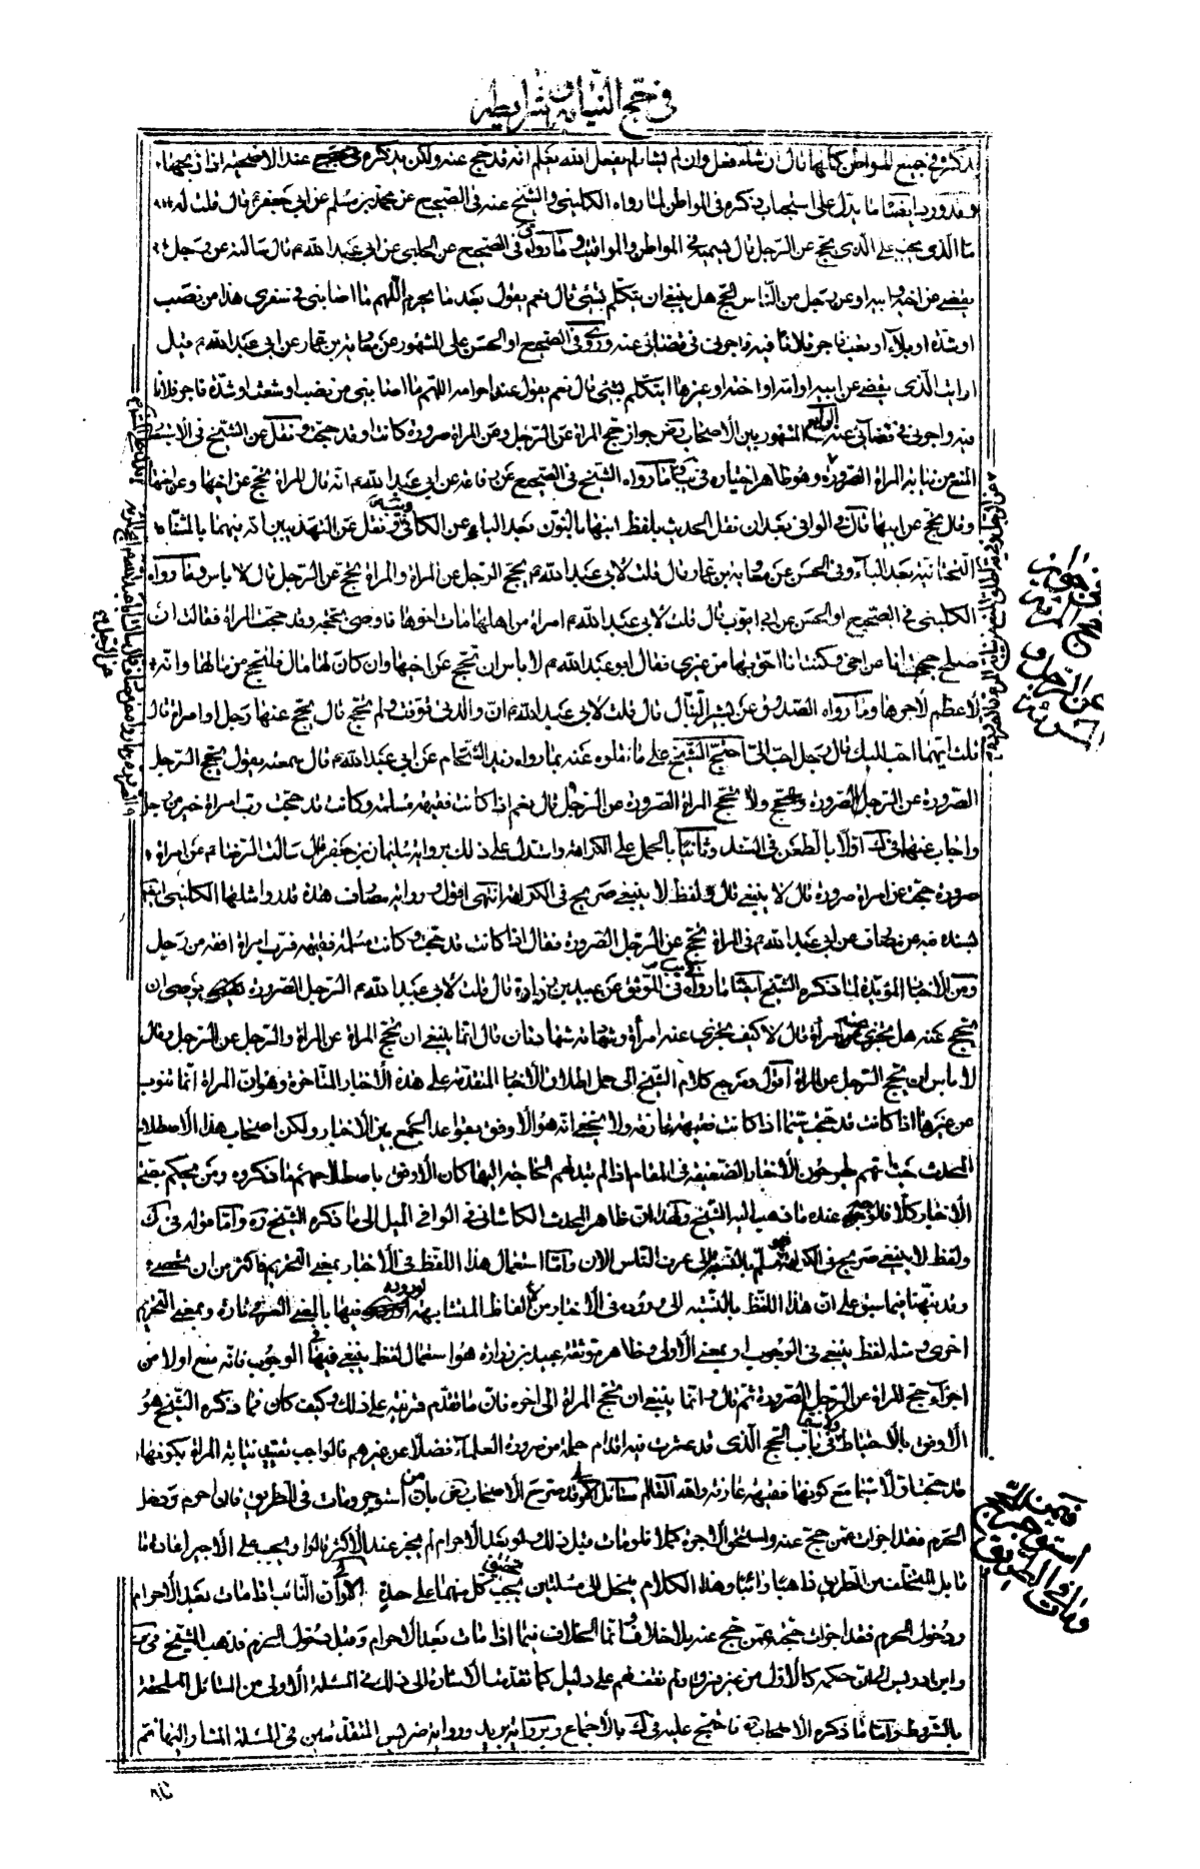 في حج النيابة وشرايطه
يذكره في جميع المواطن كلها قال ان شاء فعل وان لم يشاء لم يفعل الله يعلم انه قد حج عنه ولكن يذكره عند الاضحية اذا ذبحها
وقد ورد ايضا ما يدل على استحباب ذكره في المواطن لما رواه الكليني والشيخ عنه في الصحيح عن محمد بن مسلم عن ابي جعفر ع قال قلت له
ما الذي يجب على الذي يحج عن الرجل قال يسميه في المواطن والمواقف وما رواه في الصحيح عن الحلبي عن ابي عبد الله ع قال سالته عن رجل
يقضي عن اخيه او ابيه او عن رجل من الناس الحج هل ينبغي ان يتكلم بشئ قال نعم يقول بعد ما يحرم اللهم ما اصابني في سفري هذا من نصب
او شدة او بلاء او شعث فاجر فلانا فيه واجرني في قضائي عنه وروى في الصحيح او الحسن على المشهور عن معاوية بن عمار عن ابي عبد الله ع قيل
ارايت الذي يقضي عن ابيه او امه او اخيه او غيرهم ايتكلم بشئ قال نعم يقول عند احرامه اللهم ما اصابني من نصب او شعث او شدة فاجر فلانا
فيه واجرني في قضائي عنه الرابع المشهور بين الاصحاب رض جواز حج المراة عن الرجل وعن المراة صرورة كانت او قد حجت ونقل عن الشيخ في الاستبصار
المنع من نيابة المراة الصرورة وهو ظاهر اختياره في يب ما رواه الشيخ في الصحيح عن رفاعة عن ابي عبد الله ع انه قال المراة تحج عن اخيها وعن اختها
وقال تحج عن ابيها قال في الوافي بعد ان نقل الحديث بلفظ ابنها بالنون بعد الباء عن الكافي ونقل عن التهذيبين انه فيهما بالمثناة
التحتانية بعد الباء وفي الحسن عن معاوية بن عمار قال قلت لابي عبد الله ع يحج الرجل عن المراة والمراة تحج عن الرجل قال لا باس وما رواه
الكليني في الصحيح او الحسن عن ابي ايوب قال قلت لابي عبد الله ع امراة من اهلها مات اخوها فاوصى بحجة وقد حجت المراة فقالت ان
صلح حججت انا عن اخي وكنت انا احق بها من غيري فقال ابو عبد الله ع لا باس ان تحج عن اخيها وان كان لها مال فلتحج من مالها وانه
لاعظم لاجرها وما رواه الصدوق عن بشير النبال قال قلت لابي عبد الله ع ان والدتي توفيت ولم تحج قال يحج عنها رجل او امراة قال
قلت ايهما احب اليك قال رجل احب الي احتج الشيخ على ما نقلوه عنه بما رواه زيد الشحام عن ابي عبد الله ع قال سمعته يقول يحج الرجل
الصرورة عن الرجل الصرورة ولا تحج المراة الصرورة عن الرجل قال نعم اذا كانت فقيهة مسلمة وكانت قد حجت رب امراة خير من رجل
واجاب عنها في ك اولا بالطعن في السند وثانيا بالحمل على الكراهة واستدل على ذلك برواية سليمان بن جعفر قال سالت الرضا ع عن امراة
صرورة حجت عن امراة صرورة قال لا ينبغي قال ولفظ لا ينبغي صريح في الكراهة انتهى اقول ورواية مصادف هذه قد روا مثلها الكليني ايضا
بسنده فيه عن مصادف عن ابي عبد الله ع في المراة تحج عن الرجل الصرورة فقال اذا كانت قد حجت وكانت مسلمة فقيهة فرب امراة افقه من رجل
ومن الاخبار المؤيدة لما ذكره الشيخ ايضا ما رواه في الموثق عن عبيد بن زرارة قال قلت لابي عبد الله ع الرجل الصرورة يوصي ان
يحج عنه هل يجزي عنه امراة قال لا كيف يجزي عنه امراة وشهادته شهادتان قال انما ينبغي ان تحج المراة عن المراة والرجل عن الرجل وقال
لا باس ان يحج الرجل عن المراة اقول ومرجع كلام الشيخ الى حمل اطلاق الاخبار المتقدمة على هذه الاخبار المتاخرة وهو ان المراة انما تنوب
عن غيرها اذا كانت قد حجت سيما اذا كانت فقيهة عارفة ولا يخفى انه هو الاوفق بقواعد الجمع بين الاخبار ولكن اصحاب هذا الاصطلاح
المحدث حيث انهم يطرحون الاخبار الضعيفة في المقام اذا لم يتبد لهم الحاجة اليها كان الاوفق باصطلاحهم ما ذكروه ومن يحكم بصحة
الاخبار كلا فلا عنده ما ذهب اليه الشيخ ولهذا ان ظاهر المحدث الكاشاني في الوافي الميل الى ما ذكره الشيخ ره واما قوله في ك
ولفظ لا ينبغي صريح في الكراهة فهو مسلم بالنسبة الى عرف الناس الان واما استعمال هذا اللفظ في الاخبار بمعنى التحريم فاكثر من ان يحصى
وقد نبهنا فيما سبق على ان هذا اللفظ بالنسبة الى وروده في الاخبار من الالفاظ المتشابهة لوروده فيها بالمعنى العرفي تارة وبمعنى التحريم
اخرى ومثله لفظ ينبغي في الوجوب او بمعنى الاولى وظاهر موثقة عبيد بن زرارة هو استعمال لفظ ينبغي فيها في الوجوب فانه منع اولا من
اجزاء حج المراة عن الرجل الصرورة ثم قال وانما ينبغي ان تحج المراة الى اخره فان ما تقدم قرينة على ذلك وكيف كان فما ذكره الشيخ هو
الاوفق بالاحتياط ولا سيما في باب الحج الذي قد عثرت فيه اقدام جملة من صرورة العلماء فضلا عن غيرهم فالواجب تقييد نيابة المراة بكونها
قد حجت ولا سيما مع كونها فقيهة عارفة والله العالم مسائل الاولى قد صرح الاصحاب رض بان من استوجر ومات في الطريق فان احرم ودخل
الحرم فقد اجزات عمن حج عنه واستحق الاجرة كملا فلو مات قبل ذلك ولو بعد الاحرام لم يجز عند الاكثر قالوا ويجب على الاجير اعادة ما
قابل المتخلف من الطريق ذاهبا وائبا وهذا الكلام ينحل الى مسئلتين يجب تحقيق كل منهما على حدة الاولى ان النائب اذا مات بعد الاحرام
ودخول الحرم فقد اجزات حجته عمن حج عنه بلا خلاف وانما الخلاف فيما اذا مات بعد الاحرام وقبل دخول الحرم فذهب الشيخ في ف
وابن ادريس الى ان حكمه كالاول من غير فرق ولم نقف لهم على دليل كما تقدمت الاشارة الى ذلك في المسئلة الاولى من المسائل الملحقة
بالشروط واما ما ذكره الاصحاب فاحتج عليه في ك بالاجماع وبرواية بريد ورواية ضريس المتقدمتين في المسئلة المشار اليها ثم
في جواز حج المراة عن الرجل و
فيمن استوجر ومات في الطريق